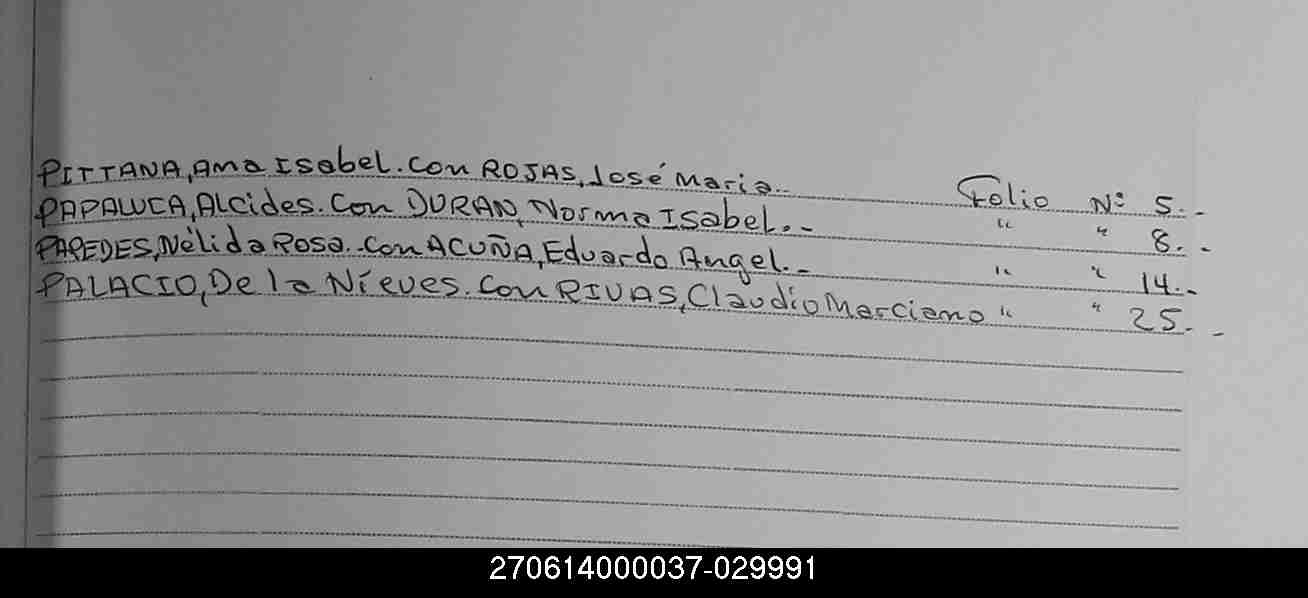 PITTANA, Ana Isabel. Con ROJAS, José Maria.. Folio Nº 5.-
PAPALUCA, Alcides. Con DURAN, Norma Isabel..- " " 8.-
PAREDES, Nélida Rosa. Con ACUÑA, Eduardo Angel..- " " 14.-
PALACIO, De la Nieves. Con RIVAS, Claudio Marciano " " 25.-
270614000037-029991